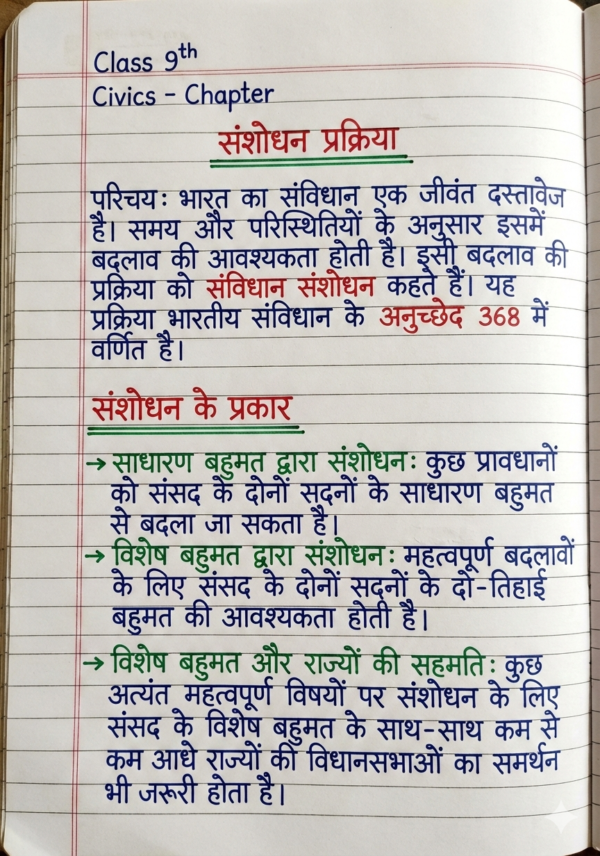 Class 9th
Civics - Chapter
संशोधन प्रक्रिया
परिचय: भारत का संविधान एक जीवंत दस्तावेज
है। समय और परिस्थितियों के अनुसार इसमें
बदलाव की आवश्यकता होती है। इसी बदलाव की
प्रक्रिया को संविधान संशोधन कहते हैं। यह
प्रक्रिया भारतीय संविधान के अनुच्छेद 368 में
वर्णित है।
संशोधन के प्रकार
→ साधारण बहुमत द्वारा संशोधन: कुछ प्रावधानों
को संसद के दोनों सदनों के साधारण बहुमत
से बदला जा सकता है।
→ विशेष बहुमत द्वारा संशोधन: महत्वपूर्ण बदलावों
के लिए संसद के दोनों सदनों के दो-तिहाई
बहुमत की आवश्यकता होती है।
→ विशेष बहुमत और राज्यों की सहमति: कुछ
अत्यंत महत्वपूर्ण विषयों पर संशोधन के लिए
संसद के विशेष बहुमत के साथ-साथ कम से
कम आधे राज्यों की विधानसभाओं का समर्थन
भी जरूरी होता है।